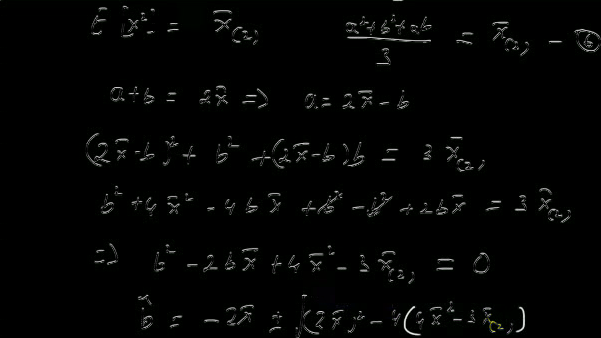 E[x²] = x̄₍₂₎   (a²+b²+ab)/3 = x̄₍₂₎ - ⑥
a+b = 2x̄ => a = 2x̄ - b
(2x̄-b)² + b² + (2x̄-b)b = 3 x̄₍₂₎
b² + 4x̄² - 4bx̄ + b² - b² + 2bx̄ = 3 x̄₍₂₎
=> b² - 2bx̄ + 4x̄² - 3x̄₍₂₎ = 0
b̂ = -2x̄ ± √(2x̄)² - 4(4x̄² - 3x̄₍₂₎)